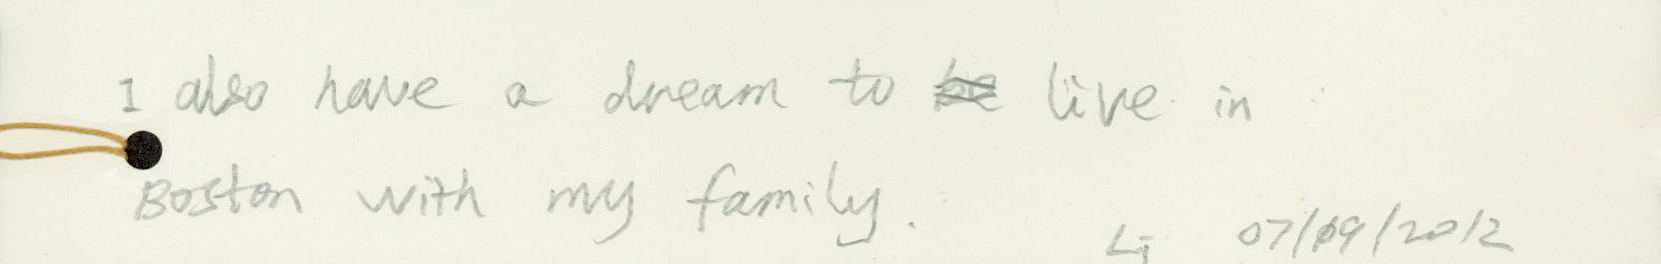 I also have a dream to be live in
Boston with my family.
Li 07/09/2012